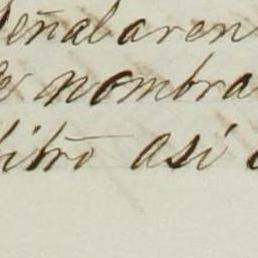 señalaren
nombra
bitrō así